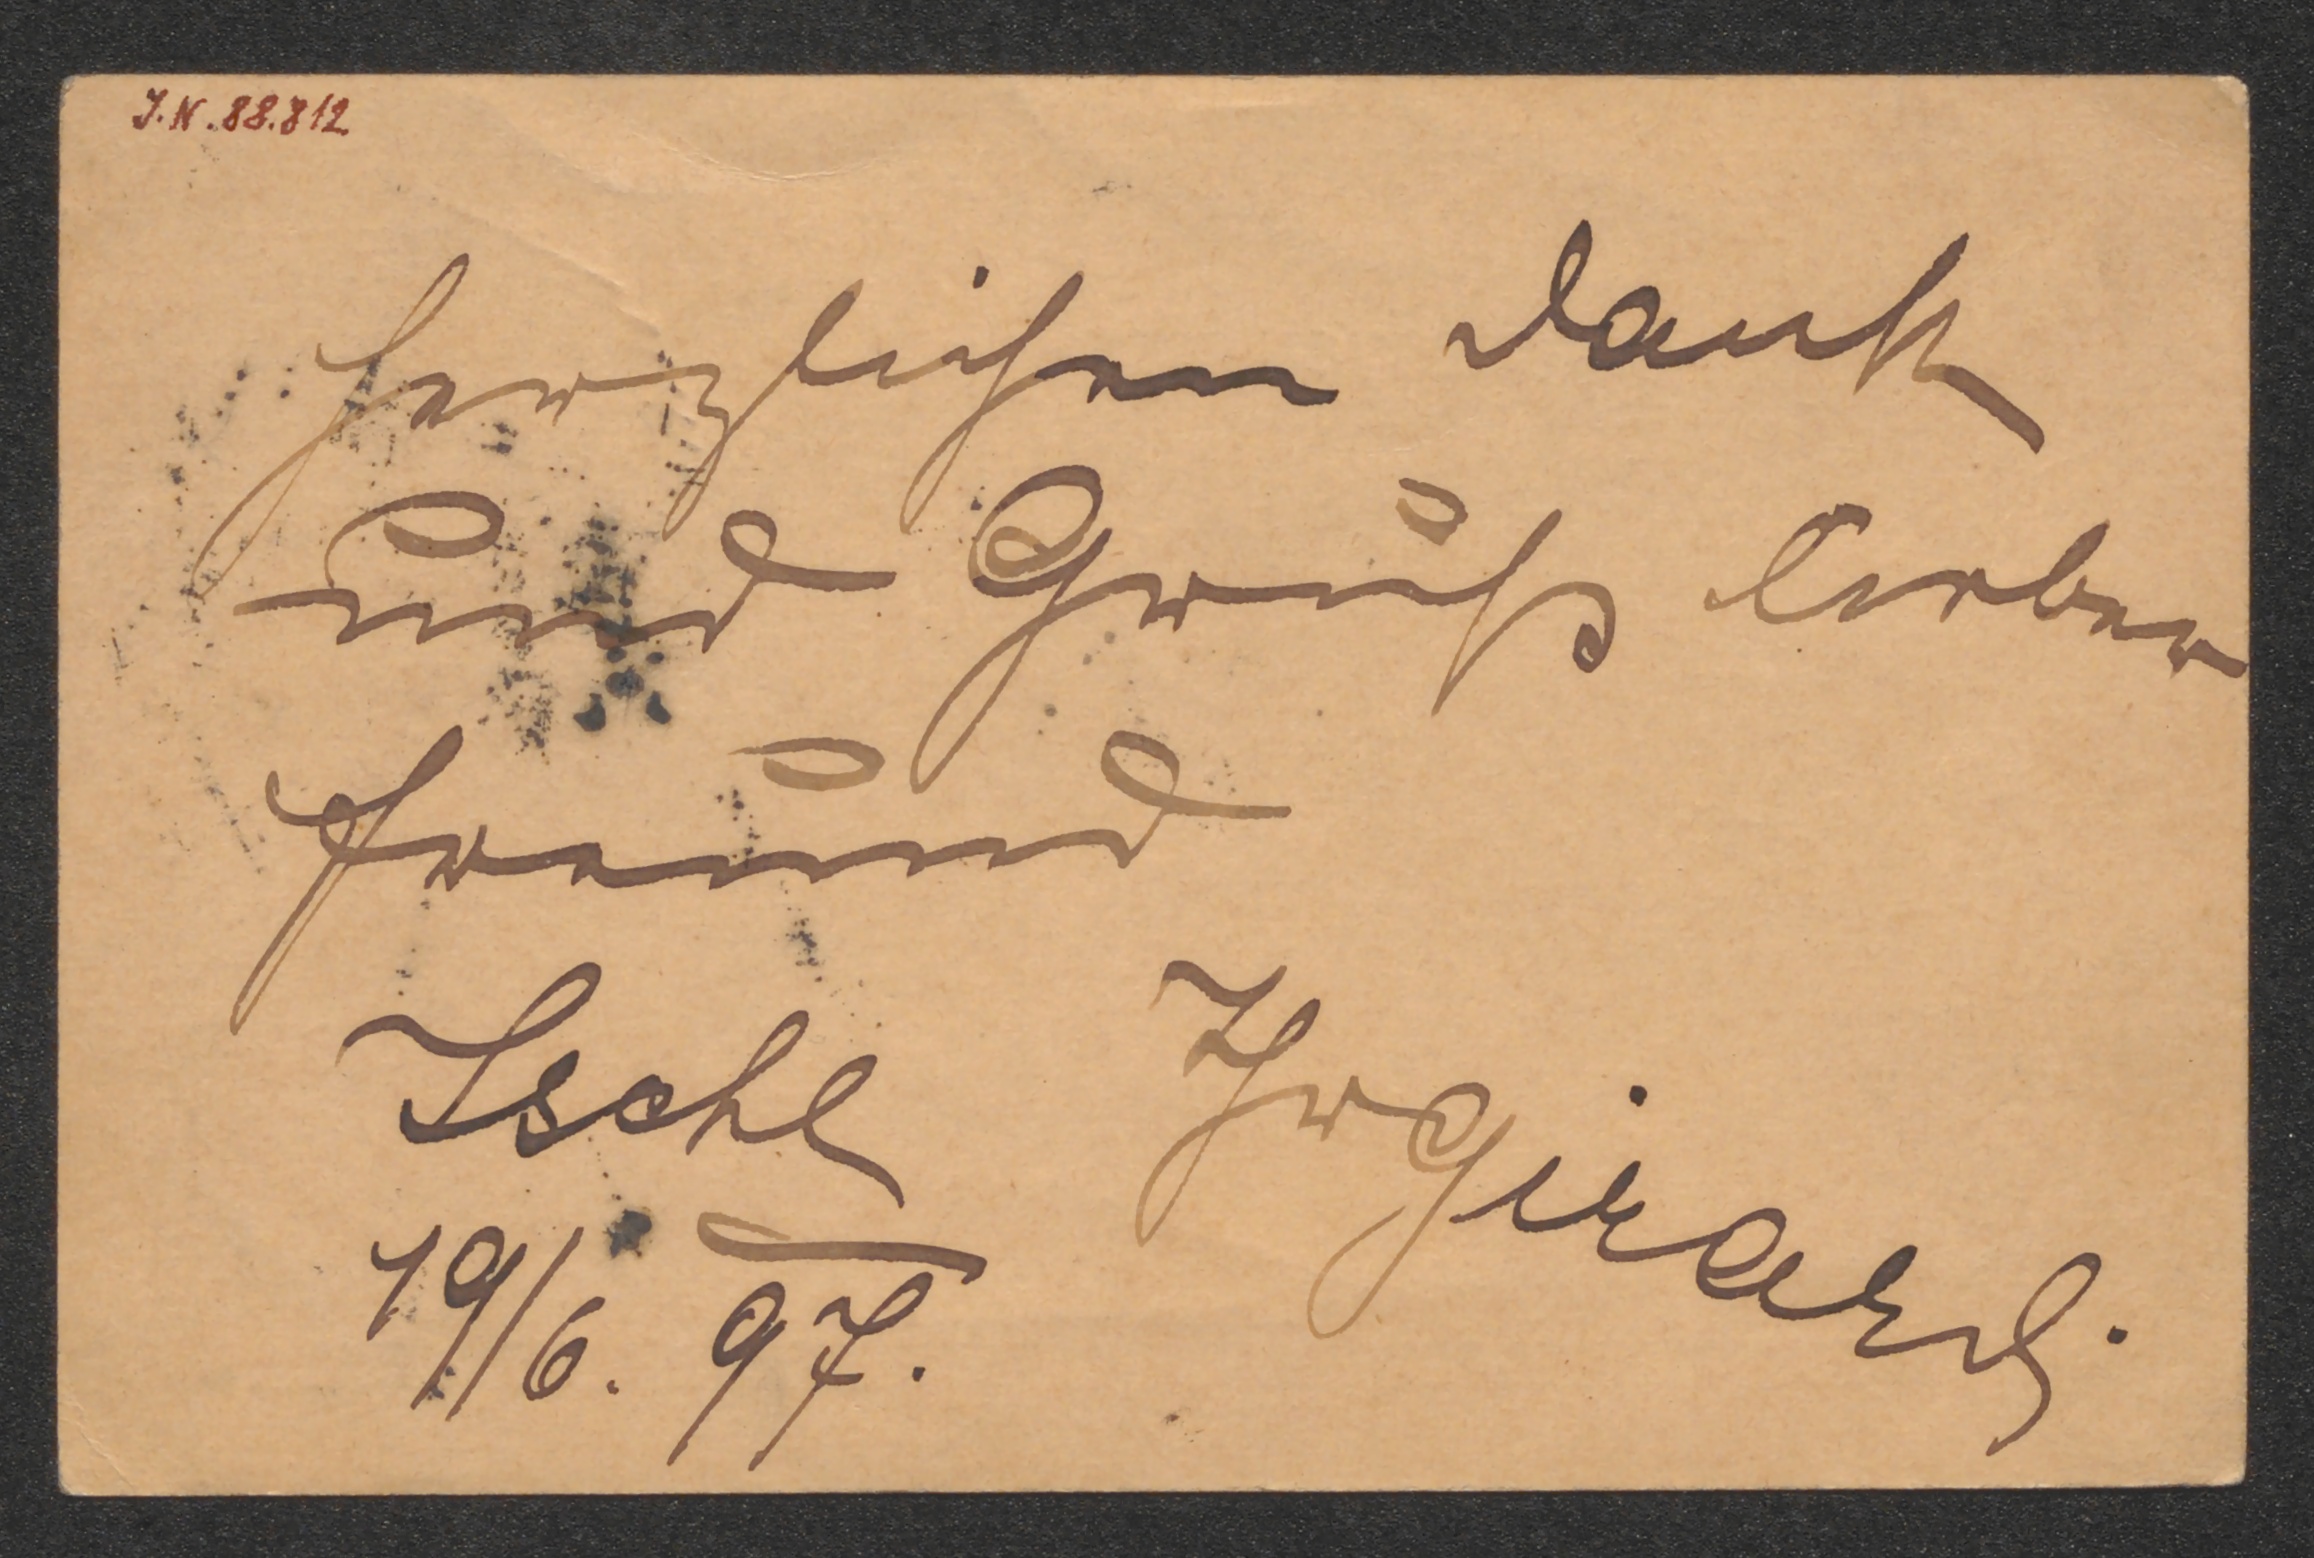 J.N. 88.812
Herzlichen Dank
und Gruß lieber
Freund
Ischl Ihr Girardi.
19/6. 97.